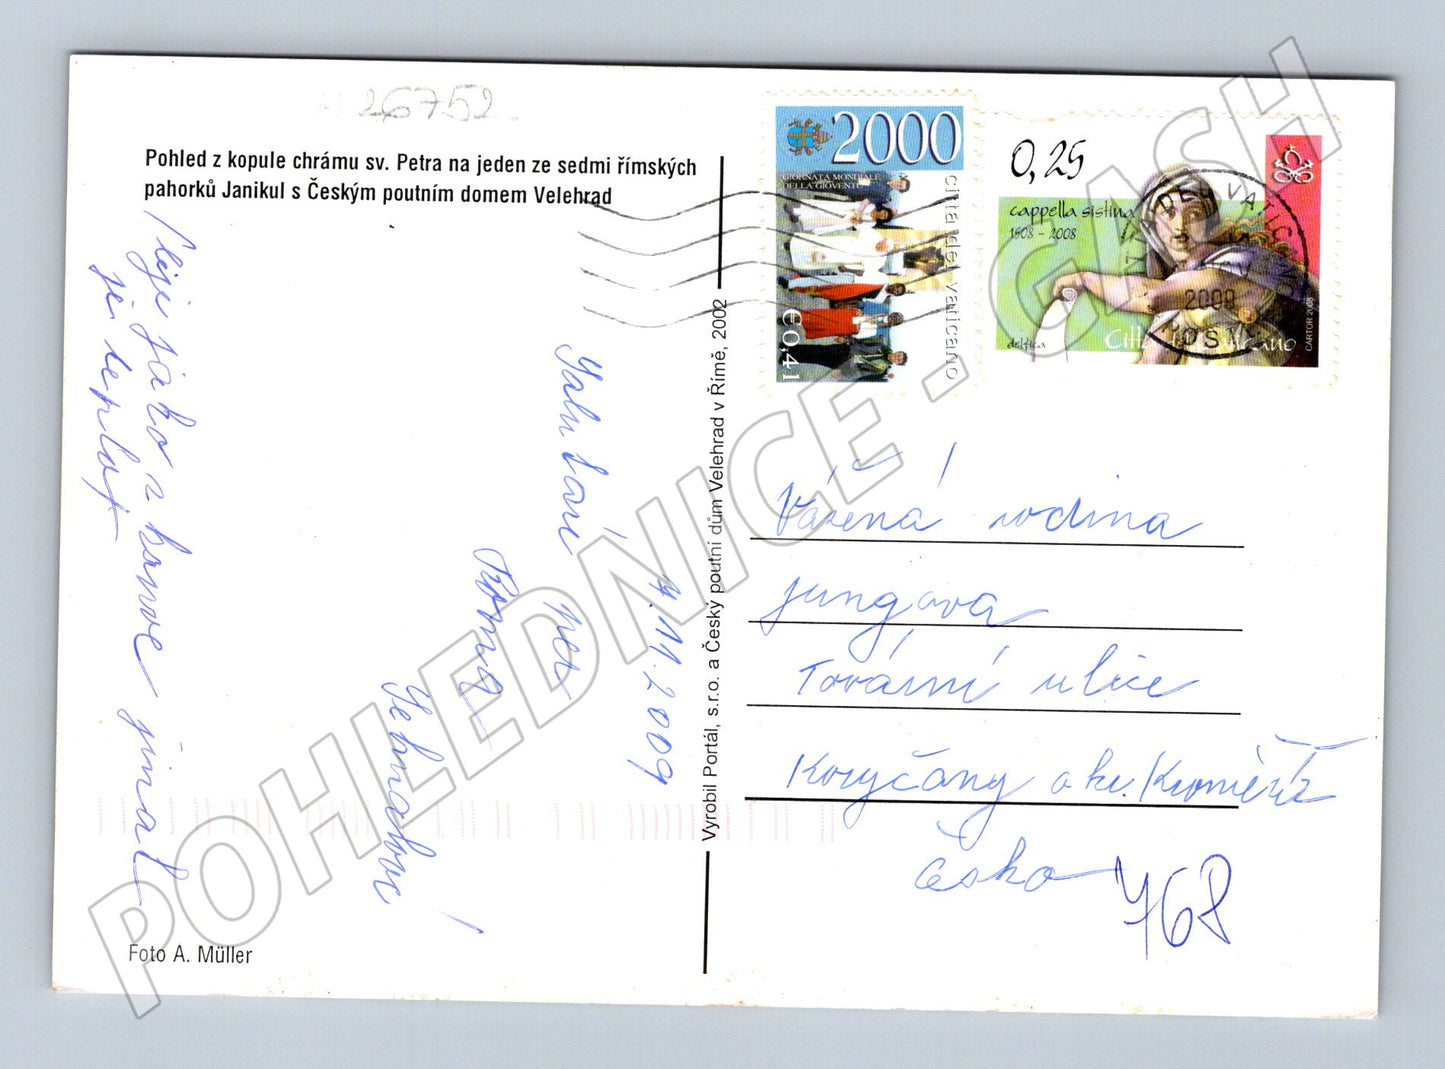 26752
Pohled z kopule chrámu sv. Petra na jeden ze sedmi římských
pahorků Janikul s Českým poutním domem Velehrad
2000
GIORNATA MONDIALE
DELLA GIOVENTÙ
città del vaticano
€0,41
0,25
cappella sistina
1508 - 2008
delfica
Città del Vaticano
CARTOR 2008
CITTA DEL VATICANO
2009
POSTE
Vyrobil Portál, s.r.o. a Český poutní dům Velehrad v Římě, 2002
jako z konve jinak
je teplo
4.11.2009
Vážená rodina
Jungova
Tovární ulice
Koryčany okr. Kroměříž
Česko
768
Foto A. Müller
POHLEDNICE - CASH